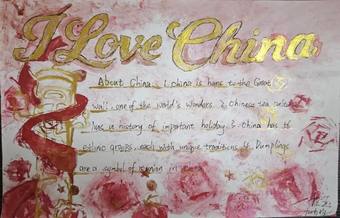 I Love China
About China 1. China is home to the Great
Wall, one of the world's wonders. 2. Chinese tea culture
has a history of important holiday. 3. China has 56
ethnic groups, each with unique traditions. 4. Dumplings
are a symbol of reunion in